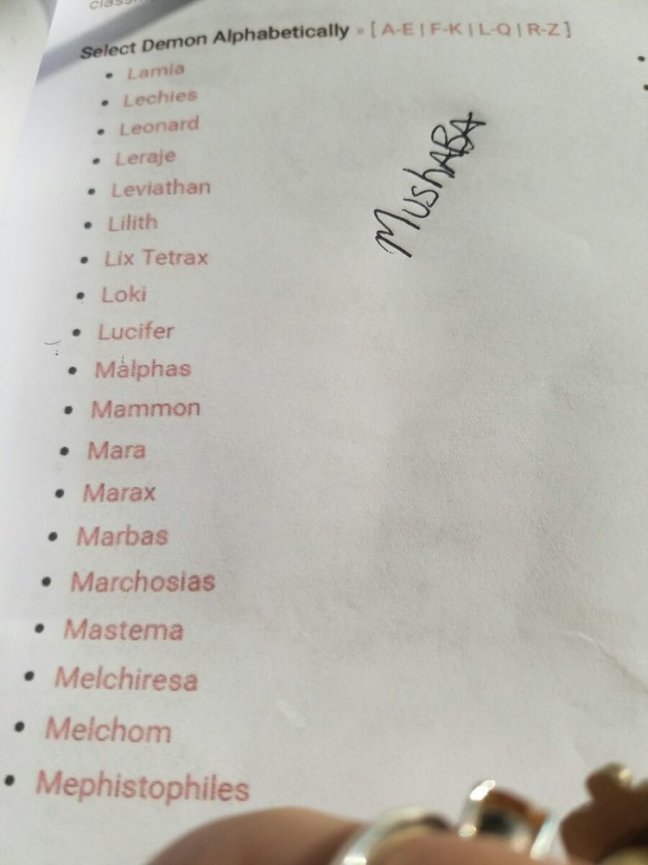 Select Demon Alphabetically » [ A-E | F-K | L-Q | R-Z ]
• Lamia
• Lechies
• Leonard
• Leraje
• Leviathan
• Lilith
• Lix Tetrax
• Loki
• Lucifer
• Malphas
• Mammon
• Mara
• Marax
• Marbas
• Marchosias
• Mastema
• Melchiresa
• Melchom
• Mephistophiles
MushABA